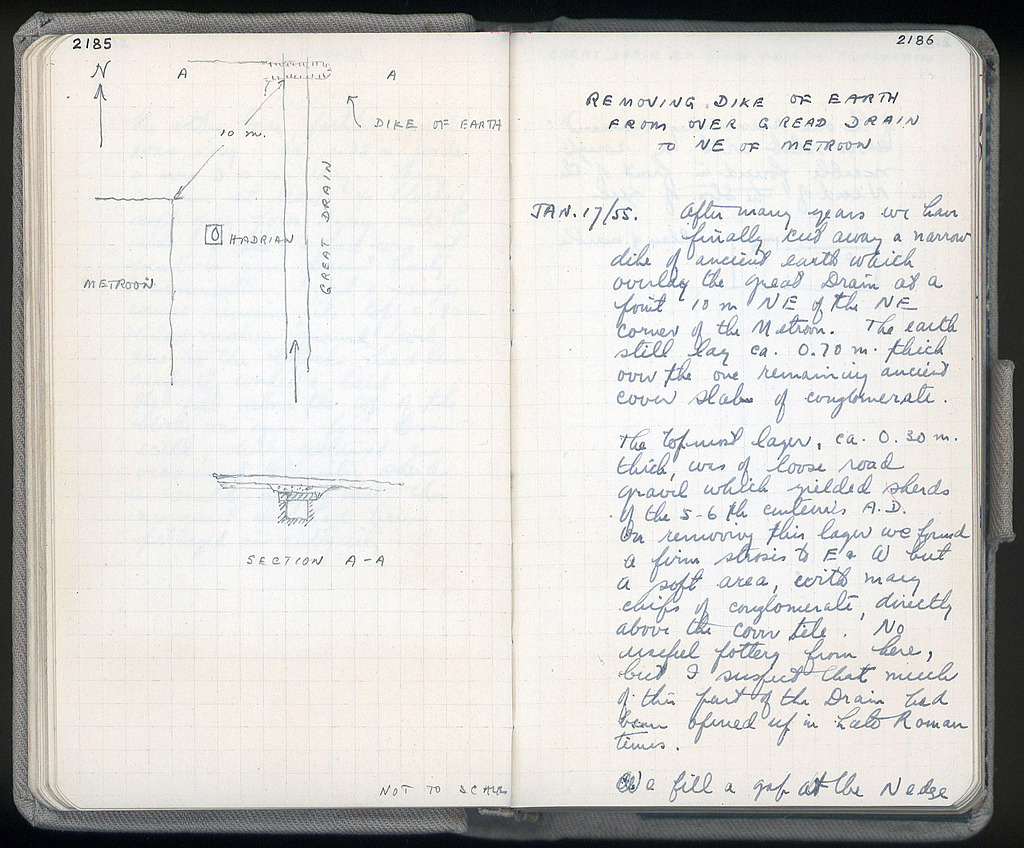 2185
N
A
A
10 m.
DIKE OF EARTH
GREAT DRAIN
HADRIAN
METROON
SECTION A-A
NOT TO SCALE
2186
REMOVING DIKE OF EARTH
FROM OVER GREAD DRAIN
TO NE OF METROON
JAN. 17/55. After many years we have
finally cut away a narrow
dike of ancient earth which
overlay the great Drain at a
point 10 m NE of the NE
corner of the Metroon. The earth
still lay ca. 0.70 m. thick
over the one remaining ancient
cover slab of conglomerate.
The topmost layer, ca. 0.30 m.
thick, was of loose road
gravel which yielded sherds
of the 5-6 th centuries A.D.
On removing this layer we found
a firm strosis to E & W but
a soft area, with many
chips of conglomerate, directly
above the cover tile. No
useful pottery from here,
but I suspect that much
of this part of the Drain had
been opened up in Late Roman
times.
a fill a gap at the N edge